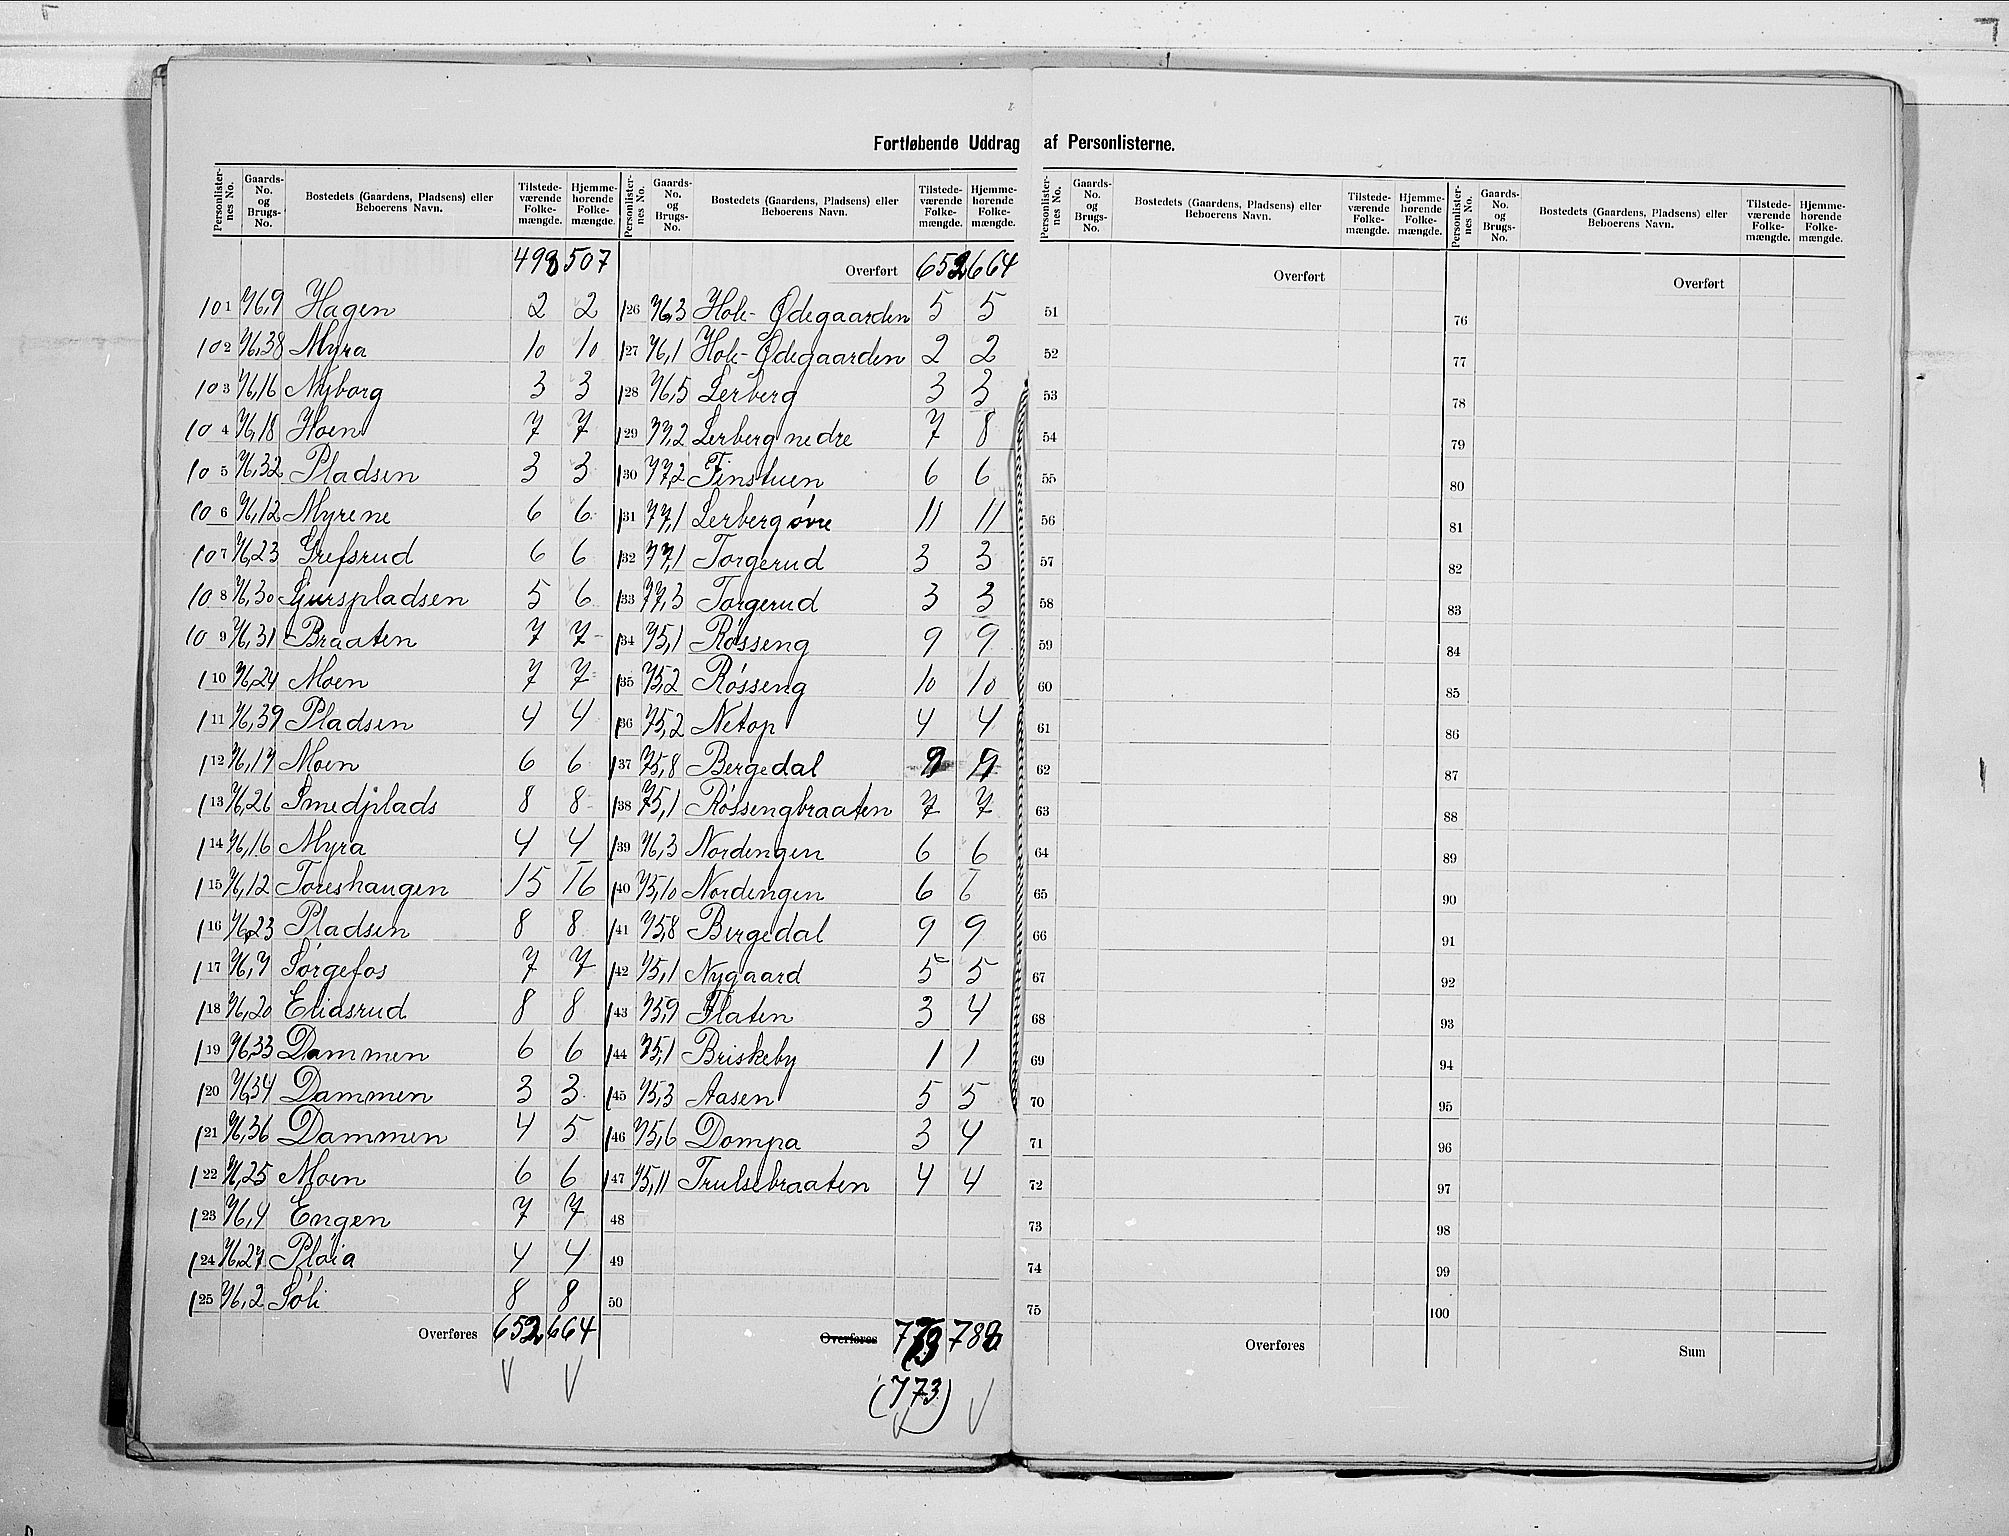 Fortløbende Uddrag af Personlisterne.
Personlister- nes No. | Gaards- No. og Brugs- No. | Bostedets (Gaardens, Pladsens) eller Beboerens Navn. | Tilstede- værende Folke- mængde. | Hjemme- hørende Folke- mængde.
498 507
101 76,9 Hagen 2 2
102 76,38 Myra 10 10
103 76,16 Nyborg 3 3
104 76,18 Hoen 7 7
105 76,32 Pladsen 3 3
106 76,12 Myrene 6 6
107 76,23 Grefsrud 6 6
108 76,30 Gurspladsen 5 6
109 76,31 Braaten 7 7
110 76,24 Moen 7 7
111 76,39 Pladsen 4 4
112 76,17 Moen 6 6
113 76,26 Smedjplads 8 8
114 76,16 Myra 4 4
115 76,12 Toreshaugen 15 16
116 76,23 Pladsen 8 8
117 76,7 Sørgefos 7 7
118 76,20 Eliasrud 8 8
119 76,33 Dammen 6 6
120 76,34 Dammen 3 3
121 76,36 Dammen 4 5
122 76,25 Moen 6 6
123 76,4 Engen 7 7
124 76,27 Pløia 4 4
125 76,2 Søli 8 8
Overføres 652 664
Personlister- nes No. | Gaards- No. og Brugs- No. | Bostedets (Gaardens, Pladsens) eller Beboerens Navn. | Tilstede- værende Folke- mængde. | Hjemme- hørende Folke- mængde.
Overført 652 664
126 76,3 Hole-Ødegaarden 5 5
127 76,1 Hole-Ødegaarden 2 2
128 76,5 Lerberg 3 3
129 77,2 Lerberg nedre 7 8
130 77,2 Finstuen 6 6
131 77,1 Lerberg øvre 11 11
132 77,1 Torgerud 3 3
133 77,3 Torgerud 3 3
134 75,1 Røsseng 9 9
135 75,2 Røsseng 10 10
136 75,2 Netop 4 4
137 75,8 Bergedal
138 75,1 Røssengbraaten 7 7
139 76,3 Nordengen 6 6
140 75,10 Nordengen 6 6
141 75,8 Bergedal 9 9
142 75,1 Nygaard 5 5
143 75,9 Flaten 3 4
144 75,1 Briskeby 1 1
145 75,3 Aasen 5 5
146 75,6 Dompa 3 4
147 75,11 Trulsebraaten 4 4
48
49
50
Overføres 773 788
(773)
Personlister- nes No. | Gaards- No. og Brugs- No. | Bostedets (Gaardens, Pladsens) eller Beboerens Navn. | Tilstede- værende Folke- mængde. | Hjemme- hørende Folke- mængde.
Overført
51
52
53
54
55
56
57
58
59
60
61
62
63
64
65
66
67
68
69
70
71
72
73
74
75
Overføres
Personlister- nes No. | Gaards- No. og Brugs- No. | Bostedets (Gaardens, Pladsens) eller Beboerens Navn. | Tilstede- værende Folke- mængde. | Hjemme- hørende Folke- mængde.
Overført
76
77
78
79
80
81
82
83
84
85
86
87
88
89
90
91
92
93
94
95
96
97
98
99
100
Sum